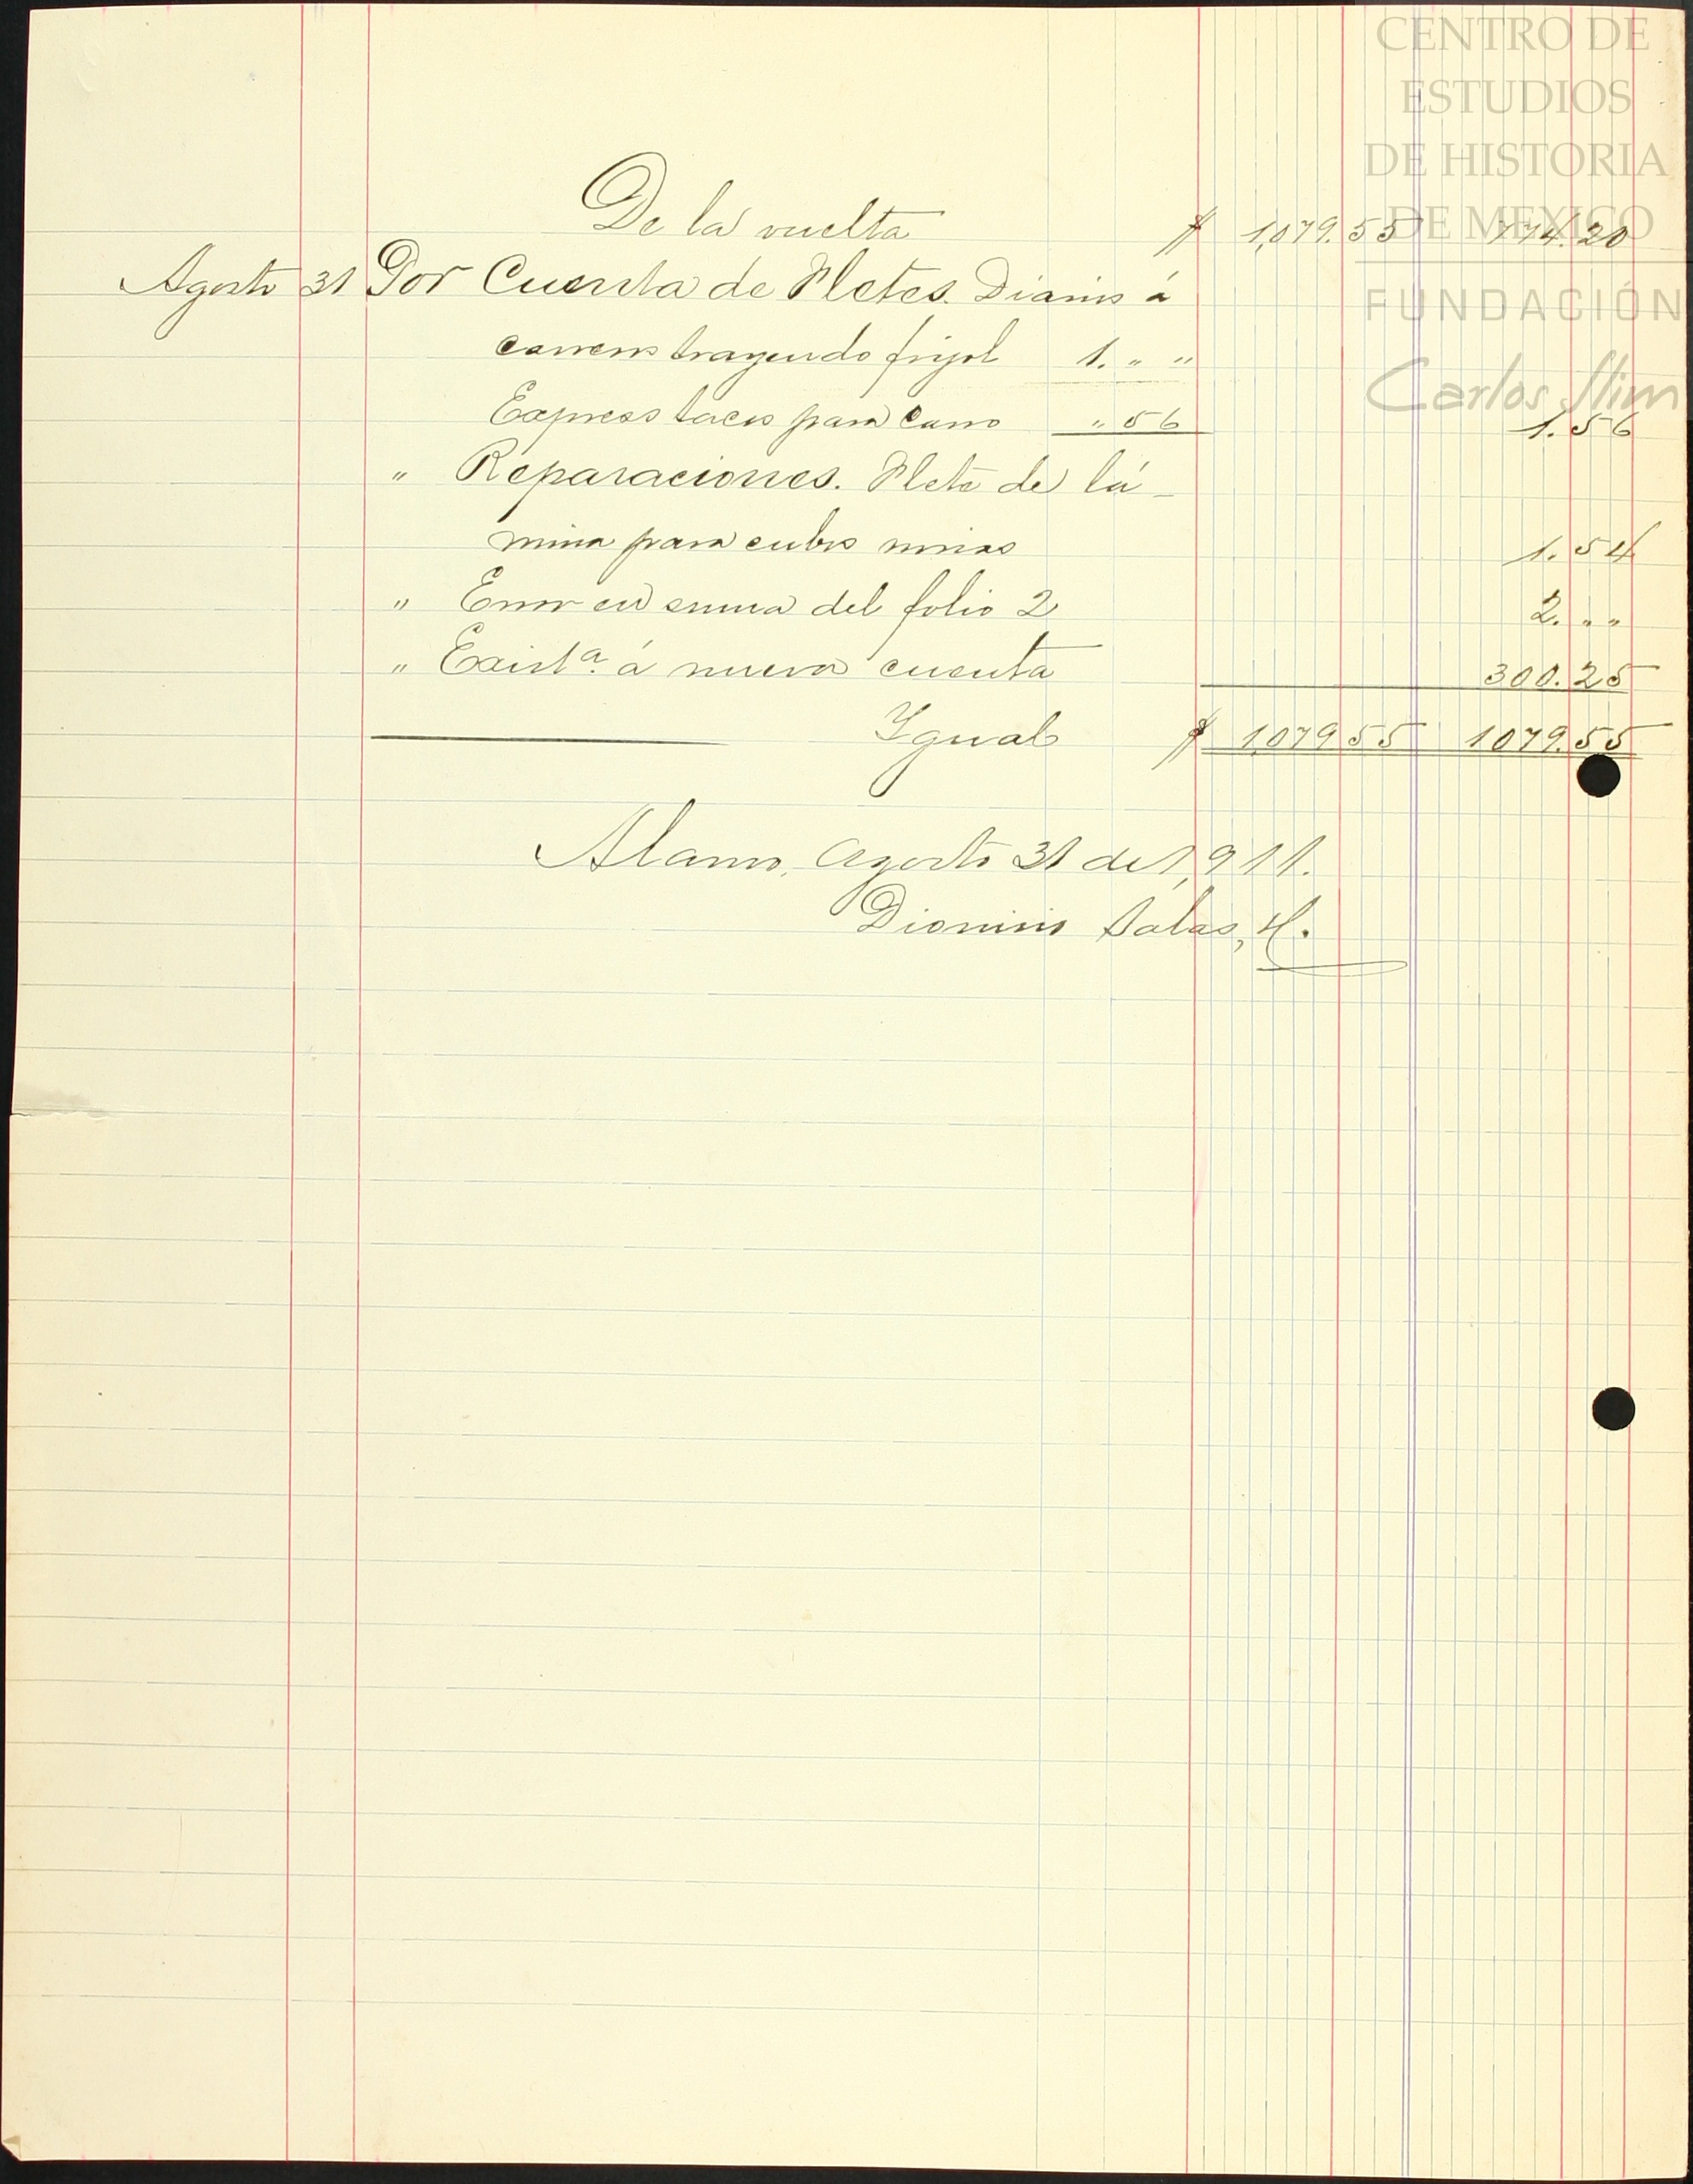 CENTRO DE
ESTUDIOS
DE HISTORIA
DE MEXICO
FUNDACIÓN
Carlos Slim
De la vuelta $ 1,079.55 774.20
Agosto 31 Por Cuenta de Fletes. Diarios á
carreros trayendo frijol 1. " "
Express tacos para carro " 56 1.56
" Reparaciones. Flete de lá-
mina para cubos minas 1.54
" Error en suma del folio 2 2. " "
" Existª. á nueva cuenta 300.25
Igual $ 1,079 55 1079.55
Alamo, Agosto 31 de 1,911.
Dionisio Salas, H.